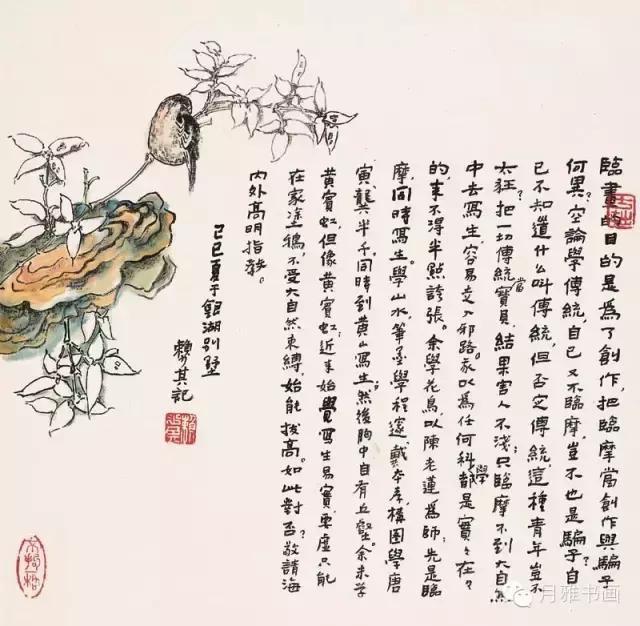 臨畫的目的是爲了創作，把臨摩當創作與騙子
何異？空論學傳統，自己又不臨摩，豈不也是騙子？自
己不知道什么叫傳統，但否定傳統，這種青年豈不
太狂？把一切傳統當寶貝，結果害人不淺；只臨摩不到大自然
中去寫生，容易走入邪路。我以爲任何科學都是實實在在
的，来不得半點誇張。余學花鳥以陳老蓮爲師；先是臨
摩，同時寫生。學山水，筆墨學程邃、戴本孝，構圖學唐
寅、龔半千，同時到黄山寫生，然後胸中自有丘壑。余未学
黄賓虹但像黄賓虹；近年始覺寫生易實，要虚只能
在家塗鴉，不受大自然束縛，始能拔高。如此對否？敬請海
内外高明指教。
己巳夏于銀湖别墅
賴其記
月雅书画